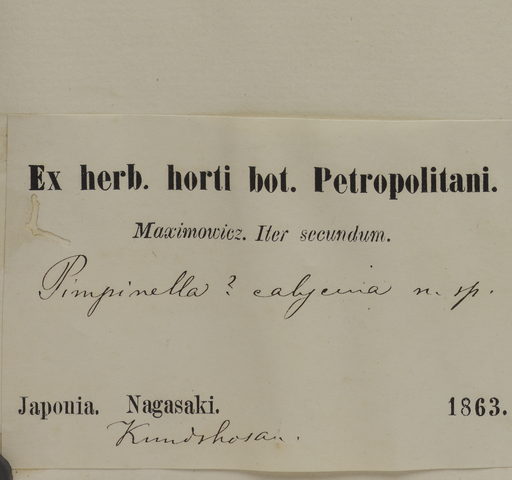 Ex herb. horti bot. Petropolitani.
Maximowicz. Iter secundum.
Pimpinella? calycina n. sp.
Japonia. Nagasaki. 1863.
Kundshosan.